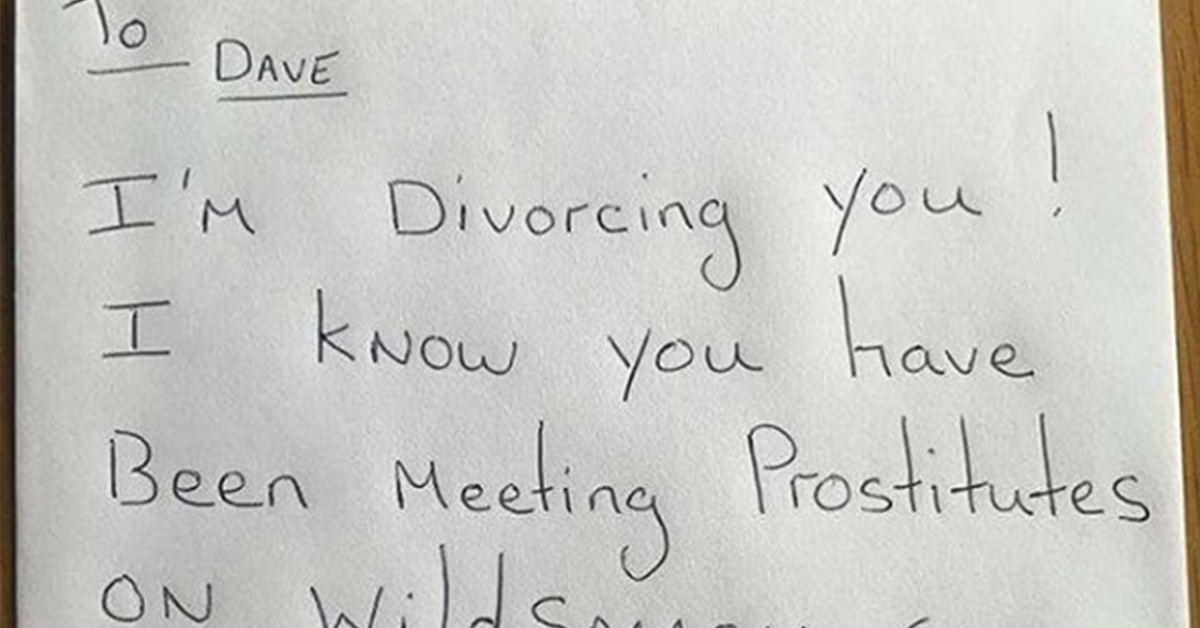 To DAVE
I'M Divorcing you!
I KNOW you have
Been Meeting Prostitutes
ON